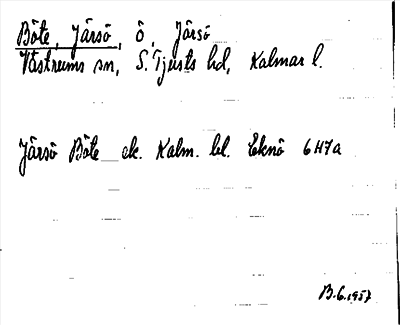 Böte, Järsö, ö, Järsö
Västrums sn, S. Tjusts hd, Kalmar l.
Järsö Böte ek. Kalm. bl. Eknö 6 H7a
B.G. 1957